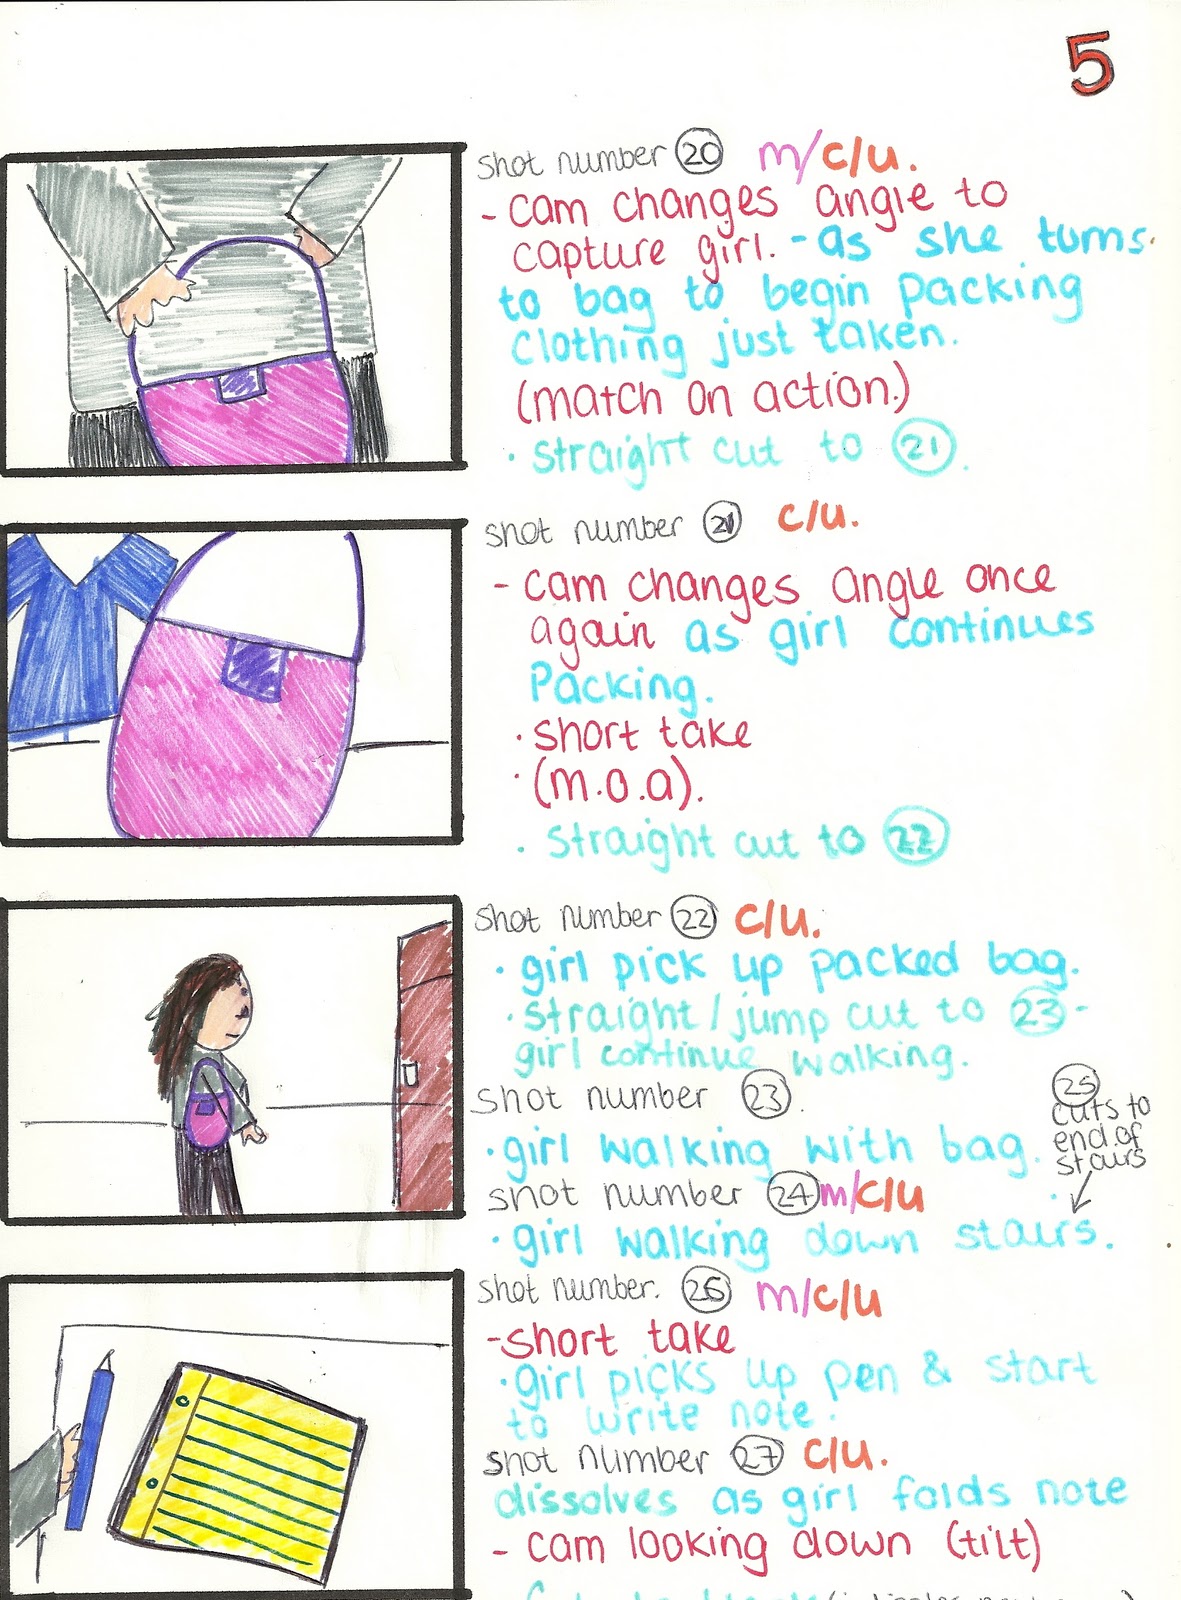 5
shot number 20 m/c/u.
- cam changes angle to
capture girl. - as she turns
to bag to begin packing
clothing just taken.
(match on action.)
· straight cut to 21.
shot number 21 c/u.
- cam changes angle once
again as girl continues
packing.
· short take
· (m.o.a).
· straight cut to 22
shot number 22 c/u.
· girl pick up packed bag.
· straight/jump cut to 23 -
girl continue walking.
shot number 23.
· girl walking with bag.
25
cuts to
end of
stairs
shot number 24 m/c/u
· girl walking down stairs.
shot number. 26 m/c/u
- short take
· girl picks up pen & start
to write note.
shot number 27 c/u.
dissolves as girl folds note
- cam looking down (tilt)